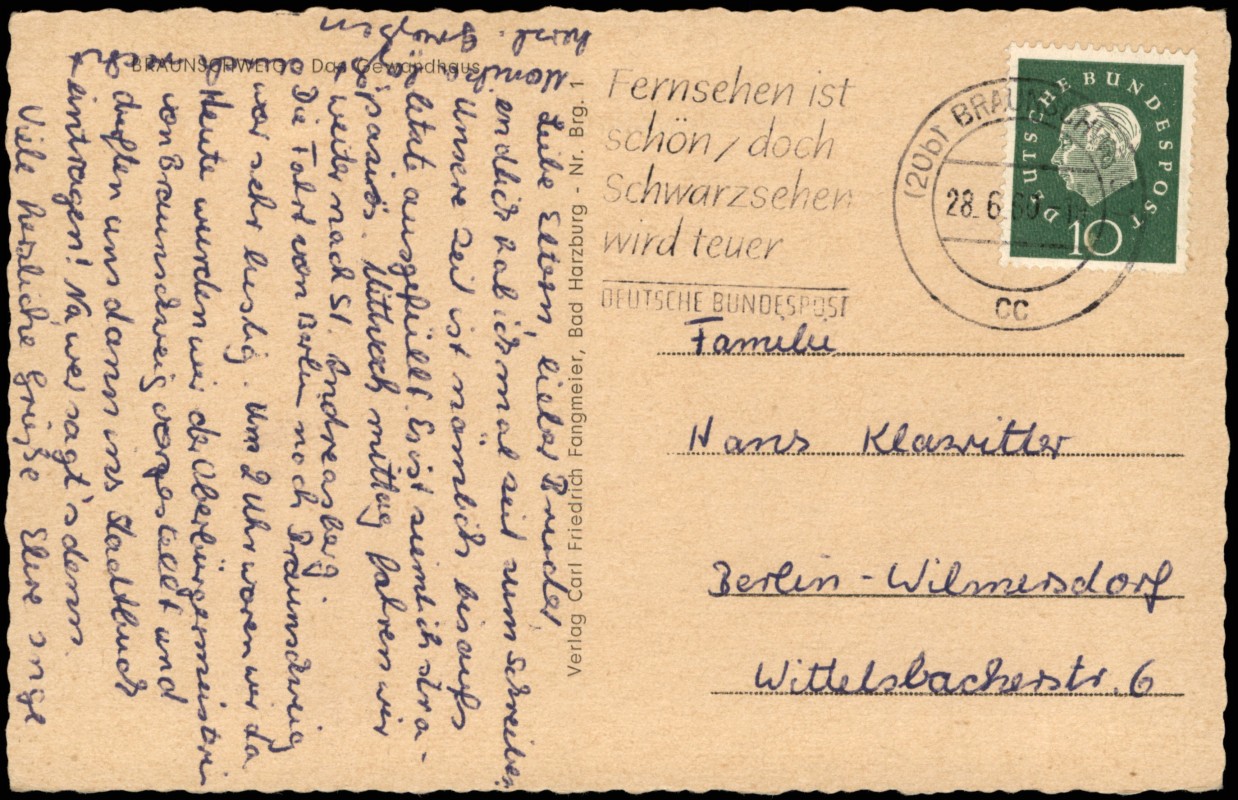 BRAUNSCHWEIG · Das Gewandhaus
Fernsehen ist
schön / doch
Schwarzsehen
wird teuer
DEUTSCHE BUNDESPOST
(20b) BRAUNSCHWEIG
28. 6. 60
cc
DEUTSCHE BUNDESPOST
10
Verlag Carl Friedrich Fangmeier, Bad Harzburg - Nr. Brg. 1
Familie
Hans Klazritter
Berlin - Wilmersdorf
Wittelsbacherstr. 6
Liebe Eltern, lieber Bruder,
endlich hab ich mal zeit zum Schreiben
Unsere Zeit ist nämlich bis aufs
letzte ausgefüllt. Es ist ziemlich stra-
paziös. Mittwoch mittag fahren wir
weiter nach St. Andreasberg.
Die Fahrt von Berlin nach Braunschweig
war sehr lustig. Um 2 Uhr waren wir da
Heute wurden wir der Oberbürgermeisterin
von Braunschweig vorgestellt und
durften uns dann ins Stadtbuch
eintragen! Na wer sagt's denn.
Viele herzliche Grüße Eure Inge